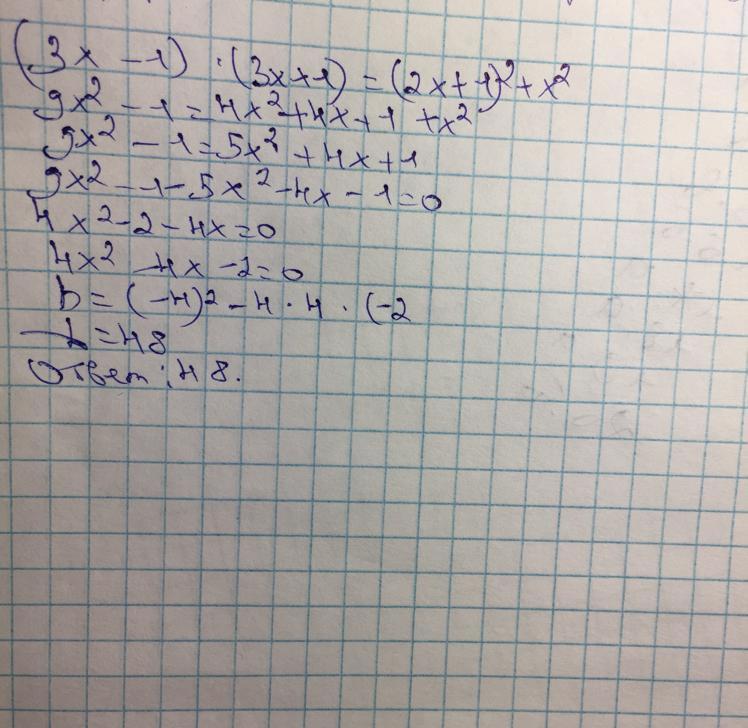 (3x - 1) · (3x+1) = (2x+1)²+x²
9x² - 1 = 4x²+4x+1 +x²
9x² - 1 = 5x² + 4x+1
9x² - 1 - 5x² - 4x - 1=0
4x² - 2 - 4x=0
4x² - 4x - 2=0
D = (-4)² - 4 · 4 · (-2
D = 48
Ответ: 48.